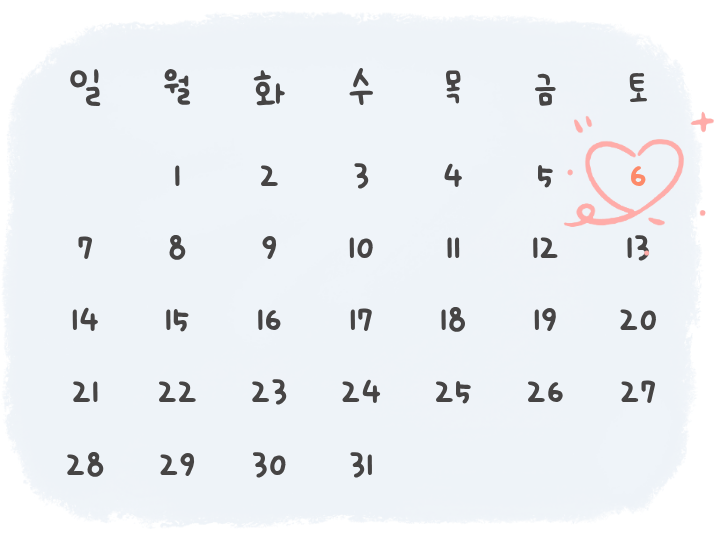 일 월 화 수 목 금 토
1 2 3 4 5 6
7 8 9 10 11 12 13
14 15 16 17 18 19 20
21 22 23 24 25 26 27
28 29 30 31